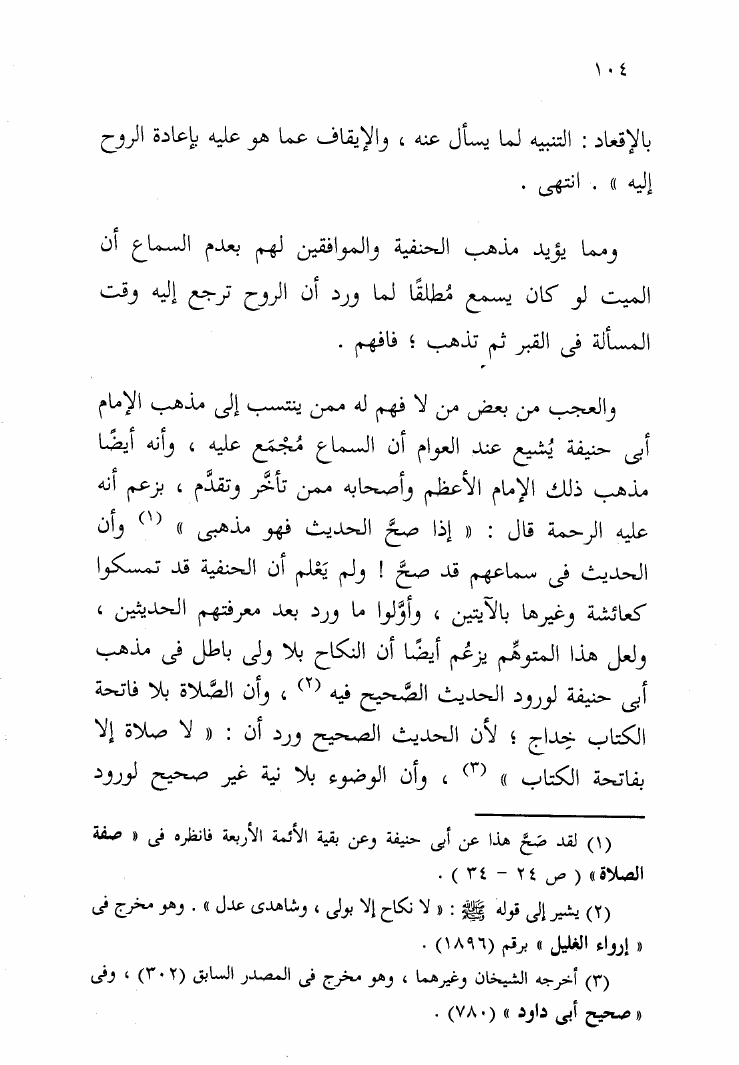 ١٠٤
بالإقعاد : التنبيه لما يسأل عنه ، والإيقاف عما هو عليه بإعادة الروح
إليه » . انتهى .
ومما يؤيد مذهب الحنفية والموافقين لهم بعدم السماع أن
الميت لو كان يسمع مُطلقًا لما ورد أن الروح ترجع إليه وقت
المسألة فى القبر ثم تذهب ؛ فافهم .
والعجب من بعض من لا فهم له ممن ينتسب إلى مذهب الإمام
أبى حنيفة يُشيع عند العوام أن السماع مُجْمَع عليه ، وأنه أيضًا
مذهب ذلك الإمام الأعظم وأصحابه ممن تأخَّر وتقدَّم ، بزعم أنه
عليه الرحمة قال : « إذا صحَّ الحديث فهو مذهبى » (١) وأن
الحديث فى سماعهم قد صحَّ ! ولم يَعْلم أن الحنفية قد تمسكوا
كعائشة وغيرها بالآيتين ، وأوَّلوا ما ورد بعد معرفتهم الحديثين ،
ولعل هذا المتوهِّم يزعُم أيضًا أن النكاح بلا ولى باطل فى مذهب
أبى حنيفة لورود الحديث الصَّحيح فيه (٢) ، وأن الصَّلاة بلا فاتحة
الكتاب خِداج ؛ لأن الحديث الصحيح ورد أن : « لا صلاة إلا
بفاتحة الكتاب » (٣) ، وأن الوضوء بلا نية غير صحيح لورود
(١) لقد صَحَّ هذا عن أبى حنيفة وعن بقية الأئمة الأربعة فانظره فى « صفة
الصلاة» ( ص ٢٤ – ٣٤ ) .
(٢) يشير إلى قوله ﷺ : « لا نكاح إلا بولى ، وشاهدى عدل » . وهو مخرج فى
« إرواء الغليل » برقم (١٨٩٦) .
(٣) أخرجه الشيخان وغيرهما ، وهو مخرج فى المصدر السابق (٣٠٢) ، وفى
« صحيح أبى داود » (٧٨٠) .